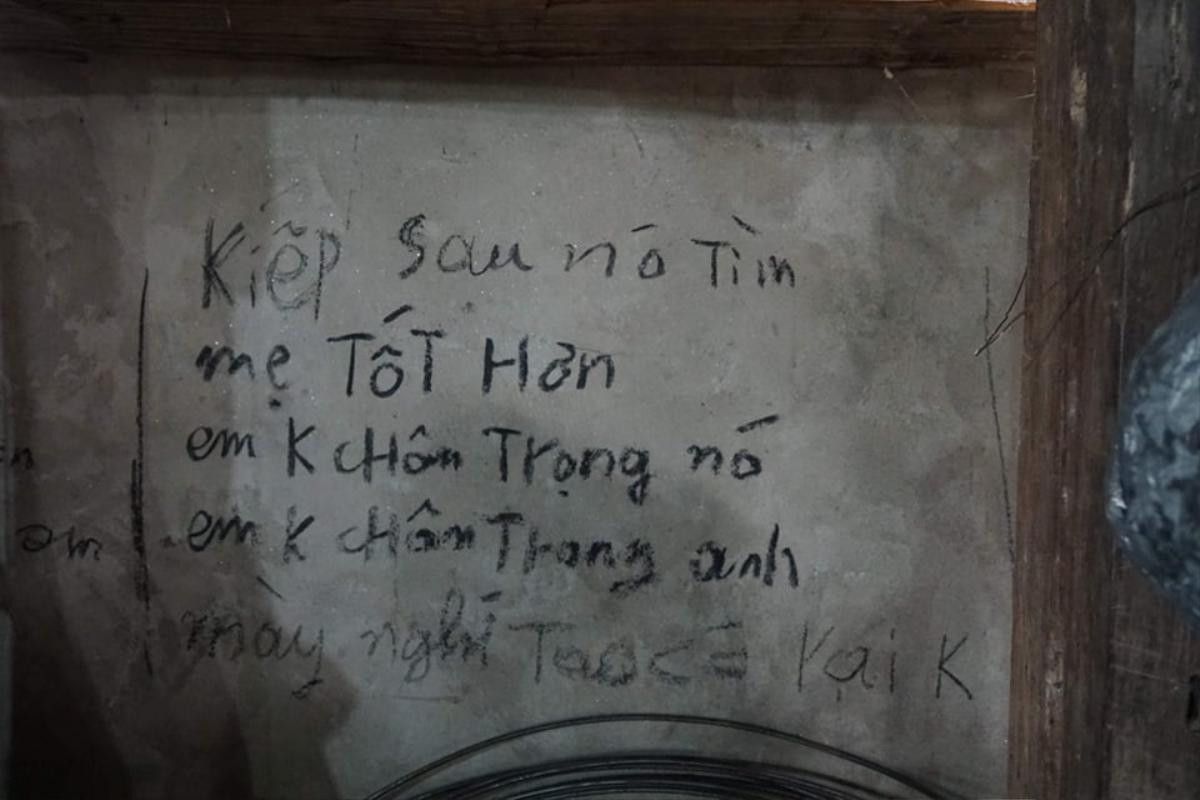 Kiếp sau nó Tìm
mẹ TốT Hơn
em K cHân Trọng nó
em K cHân Trọng anh
mày nghĩ Tao có Vại K
am